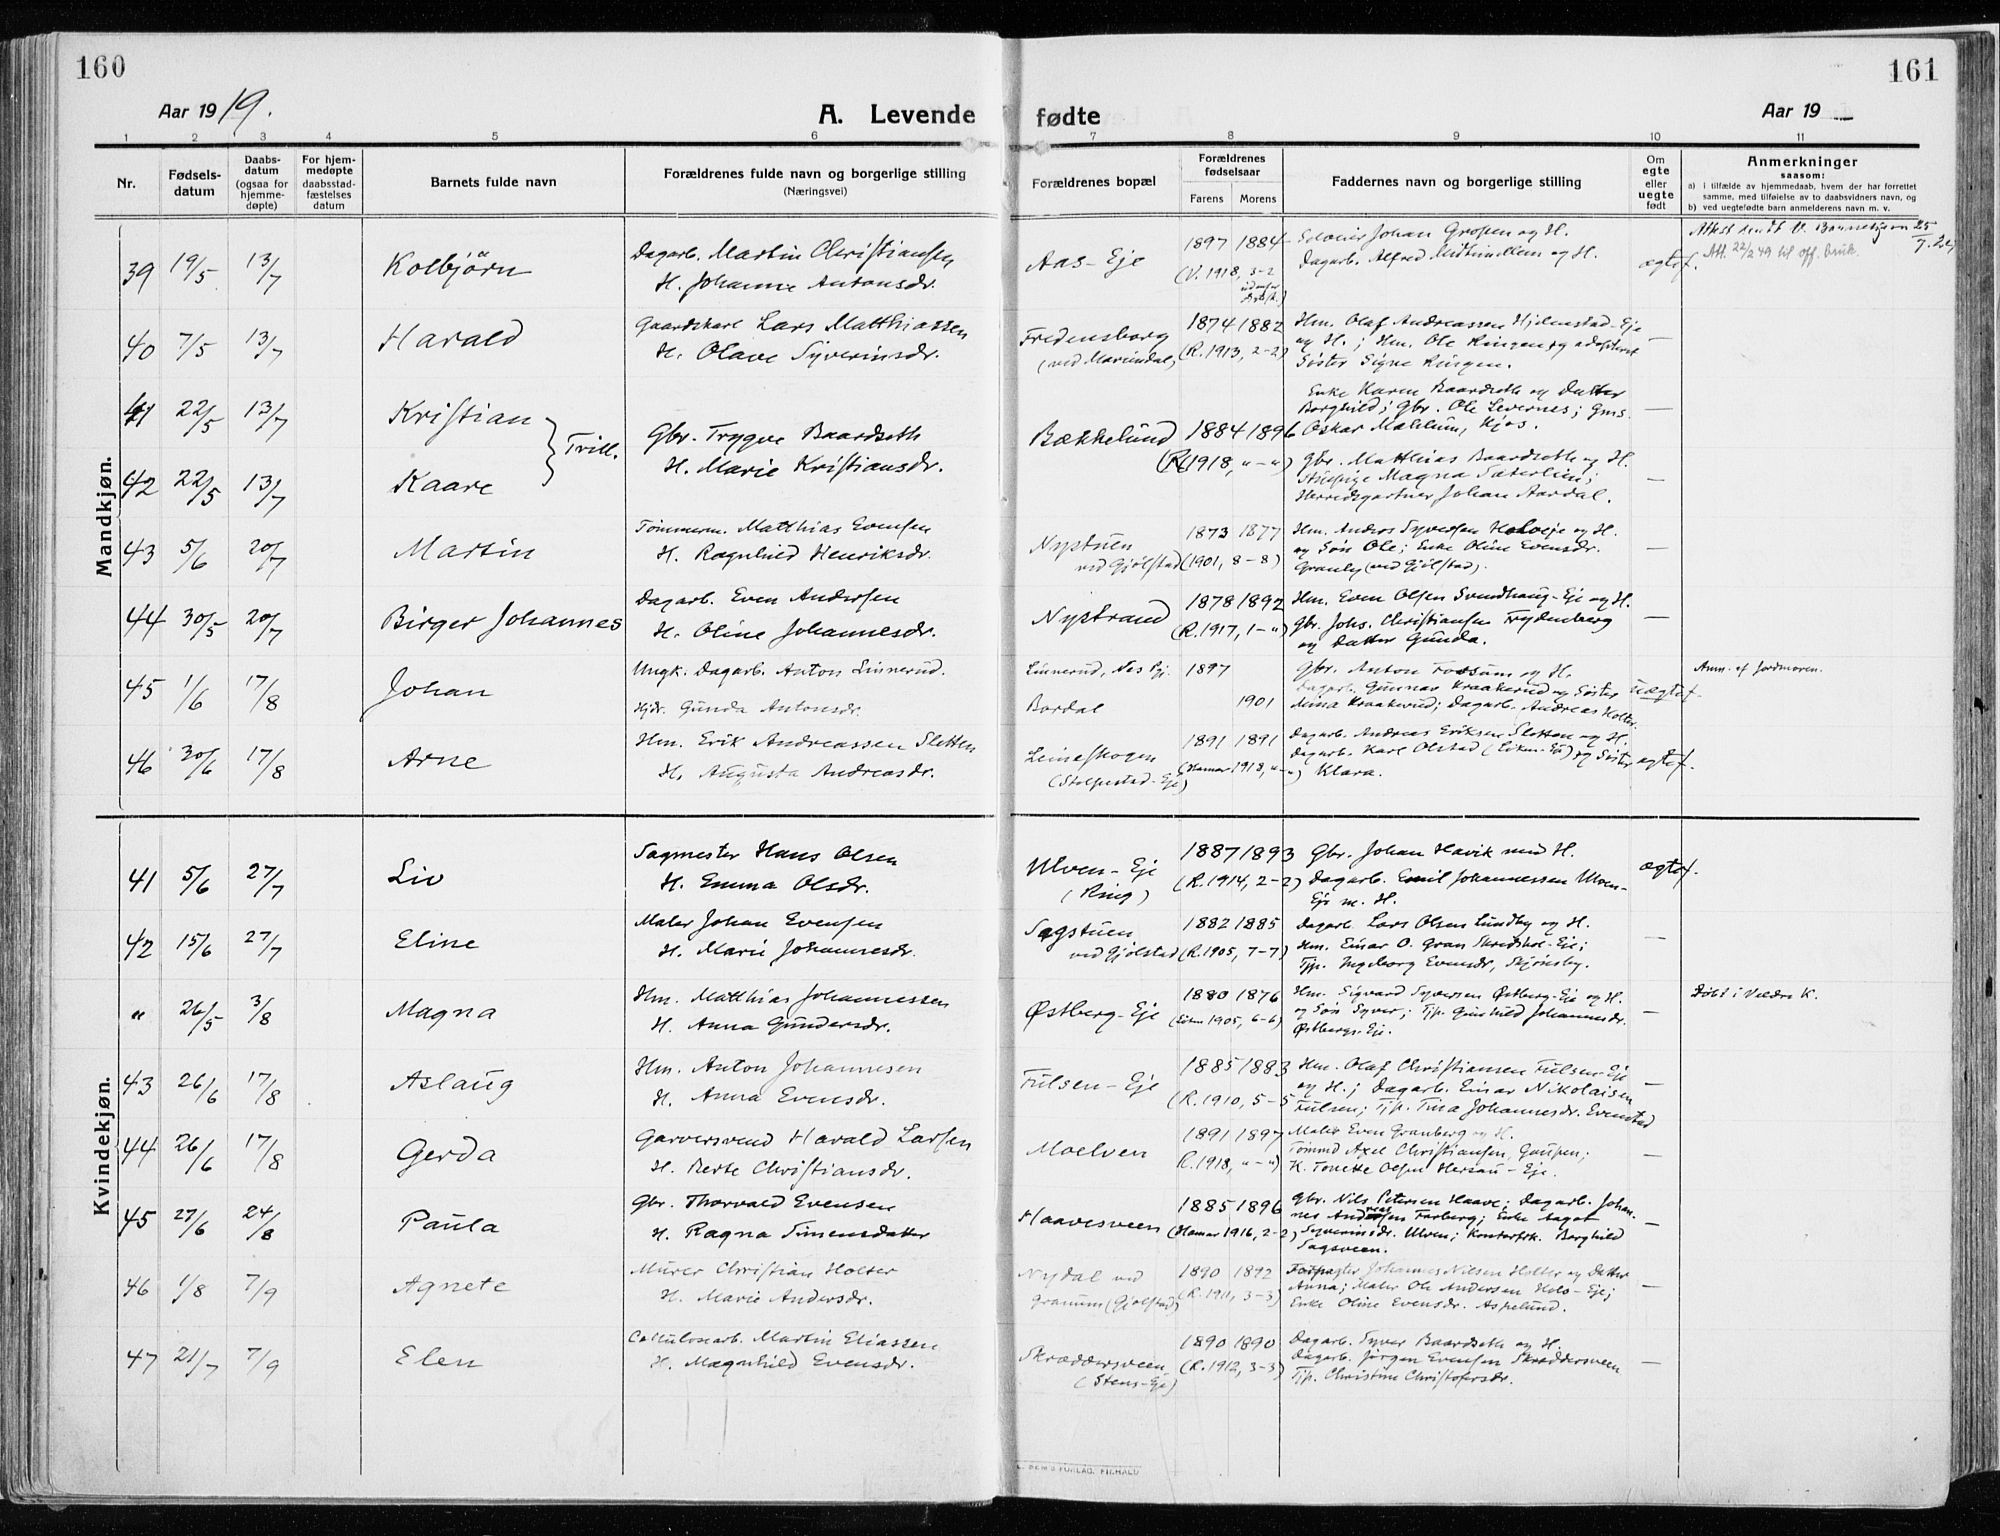 160
161
Aar 1919.
A. Levende fødte
Aar 19
1 2 3 4 5 6 7 8 9 10 11
Nr.
Fødsels-
datum
Daabs-
datum
(ogsaa for
hjemme-
døpte)
For hjem-
medøpte
daabsstad-
fæstelses
datum
Barnets fulde navn
Forældrenes fulde navn og borgerlige stilling
(Næringsvei)
Forældrenes bopæl
Forældrenes
fødselsaar
Farens Morens
Faddernes navn og borgerlige stilling
Om
egte
eller
uegte
født
Anmerkninger
saasom:
a) i tilfælde av hjemmedaab, hvem der har forrettet
samme, med tilføielse av to daabsvidners navn, og
b) ved uegtefødte barn anmelderens navn m. v.
Mandkjøn.
39 19/5 13/7 Kolbjörn
Dagarb. Martin Christiansen
H. Johanne Antonsdr.
Aas-Eje
1897 1884
(V. 1918, 3-2
Johan Gropen og H.
Dagarb. Alfred og H.
ægtef.
Att. 22/2 49 til off. bruk.
40 7/5 13/7 Harald
Gaardskarl Lars Matthiassen
H. Olave Syverinsdr.
Fredensborg
(ved Mariendal)
1874 1882
(R. 1913, 2-2)
Hm. Olaf Andreassen Hjelmstad-Eje
og H.; Hm. Ole Ringen og adoptivd
Søster Signe Ringen.
—
41 22/5 13/7 Kristian
42 22/5 13/7 Kaare
Tvill.
Gbr. Trygve Baardseth
H. Marie Kristiansdr.
Bækkelund
1884 1896
(R. 1918, "-")
Enke Karen Baardseth og Datter
Borghild; Gbr. Ole Levernes; Gms.
Oskar Mælum, Kjos.
—
Gbr. Matthias Baardseth og H.
Magna Sæterlien;
Herredsgartner Johan Aardal.
—
43 5/6 20/7 Martin
Tømmerm. Matthias Evensen
H. Ragnhild Henriksdr.
Nystuen
ved Gjölstad
1873 1877
(1901, 8-8)
Hm. Anders Syversen Holoeje og H.
og Søn Ole; Enke Oline Evensdr.
Granly (ved Gjölstad).
—
44 30/5 20/7 Birger Johannes
Dagarb. Even Andersen
H. Oline Johannesdr.
Nystrand
1878 1892
(R. 1917, 1-")
Hm. Even Olsen Svendhaug-Eje og H.
Gbr. Johs. Christiansen Frydenberg
og Datter Gunda.
—
45 1/6 17/8 Johan
Ungk. Dagarb. Anton Linnerud.
Hjdr. Gunda Antonsdr.
Linnerud, Nes Pgj.
Bordal
1897
1901
Gbr. Anton Fossum og H.
Dagarb. Gunnar Kraakerud og Søster
Mina Kraakerud; Dagarb. Andreas Holter.
uægtef.
Anm. af Jordmoren.
46 30/6 17/8 Arne
Hm. Erik Andreassen Sletten
H. Augusta Andreasdr.
Leineskogen
(Stolpestad-Eje)
1891 1891
(Hamar 1918, "-")
Dagarb. Andreas Eriksen Sletten og H.
Dagarb. Karl Olstad (Eiken-Eje) og Søster
Klara.
ægtef.
Kvindekjøn.
41 5/6 27/7 Liv
Sagmester Hans Olsen
H. Emma Olsdr.
Ulven-Eje
(Ring)
1887 1893
(R. 1914, 2-2)
Gbr. Johan Havik med H.
Dagarb. Emil Johannessen Ulven-
Eje m. H.
ægtef.
42 15/6 27/7 Eline
Maler Johan Evensen
H. Marie Johannesdr.
Sagstuen
ved Gjölstad
1882 1885
(R. 1905, 7-7)
Dagarb. Lars Olsen Lundby og H.
Hm. Einar O. Gran Skredshol-Eje;
Tjp. Ingeborg Evensdr, Skjönsby.
—
" 26/5 3/8 Magna
Hm. Matthias Johannessen
H. Anna Gundersdr.
Østberg-Eje
1880 1876
(Eiken 1905, 6-6)
Hm. Sigvard Syversen Østberg-Eje og H.
og Søn Syver; Tjp. Gunhild Johannesdr.
Østbergs-Eje.
—
Döbt i Veldre K.
43 26/6 17/8 Aslaug
Hm. Anton Johannesen
H. Anna Evensdr.
Fulsen-Eje
1885 1883
(R. 1910, 5-5
Hm. Olaf Christiansen Fulsen-Eje
og H.; Dagarb. Einar Nikolaisen
Fulsen; Tjp. Tina Johannesdr. Evenstad
—
44 26/6 17/8 Gerda
Garversvend Harald Larsen
H. Berte Christiansdr.
Moelven
1891 1897
R. 1918, "-")
Maler Even Granberg og H.
Tømmd Axel Christiansen, Gaupen;
K. Tonette Olsen Hersau-Eje.
—
45 27/6 24/8 Paula
Gbr. Thorvald Evensen
H. Ragna Simensdatter
Haavesveen
1885 1896
(Hamar 1916, 2-2)
Gbr. Nils Petersen Haave; Dagarb. Johan-
nes Andersen Farberg; Enke Agate
Syverinsdr. Ulven; Kontorfrk. Borghild
Sagsveen.
—
46 1/8 7/9 Agnete
Murer Christian Holter
H. Marie Andersdr.
Nydal ved
Granum (Gjölstad)
1890 1892
(R. 1911, 3-3)
Forpagter Johannes Nilsen Holter og Datter
Anna; Maler Ole Andersen Holo-Eje;
Enke Oline Evensdr. Aspelund.
—
47 21/7 7/9 Elen
Cellulosearb. Martin Eliassen
H. Magnhild Evensdr.
Skræddersveen
(Stens-Eje)
1890 1890
(R. 1912, 3-3)
Dagarb. Syver Baardseth og H.
Dagarb. Jörgen Evensen Skræddersveen
Tjp. Christine Christofersdr.
—